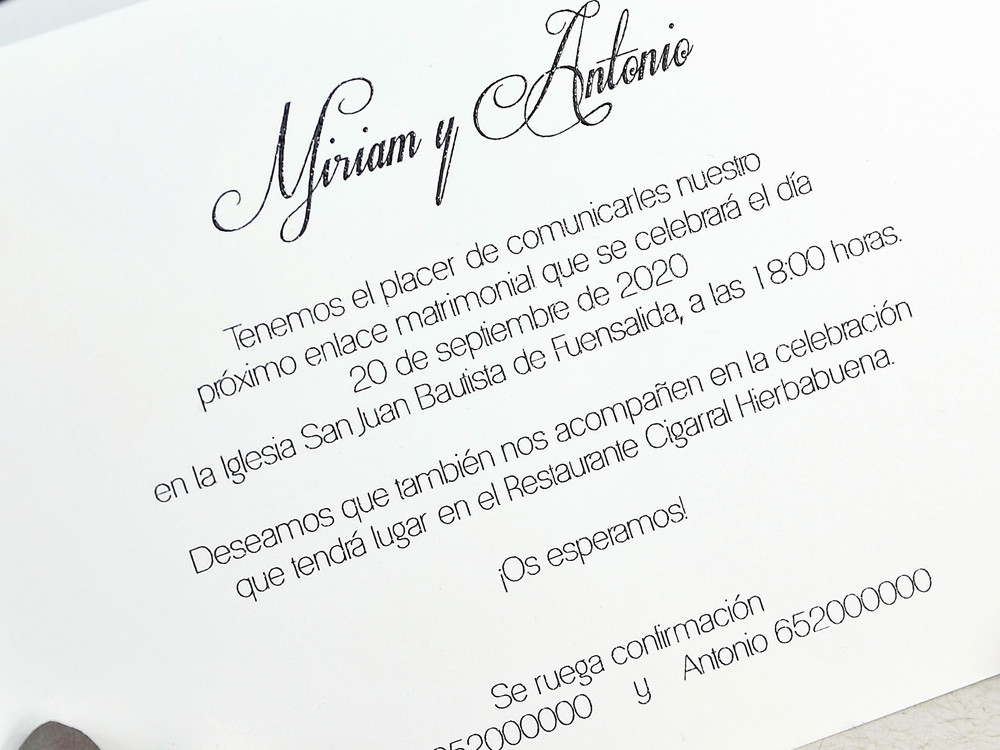 Miriam y Antonio
Tenemos el placer de comunicarles nuestro
próximo enlace matrimonial que se celebrará el día
20 de septiembre de 2020
en la Iglesia San Juan Bautista de Fuensalida, a las 18:00 horas.
Deseamos que también nos acompañen en la celebración
que tendrá lugar en el Restaurante Cigarral Hierbabuena.
¡Os esperamos!
Se ruega confirmación
52000000 y Antonio 652000000